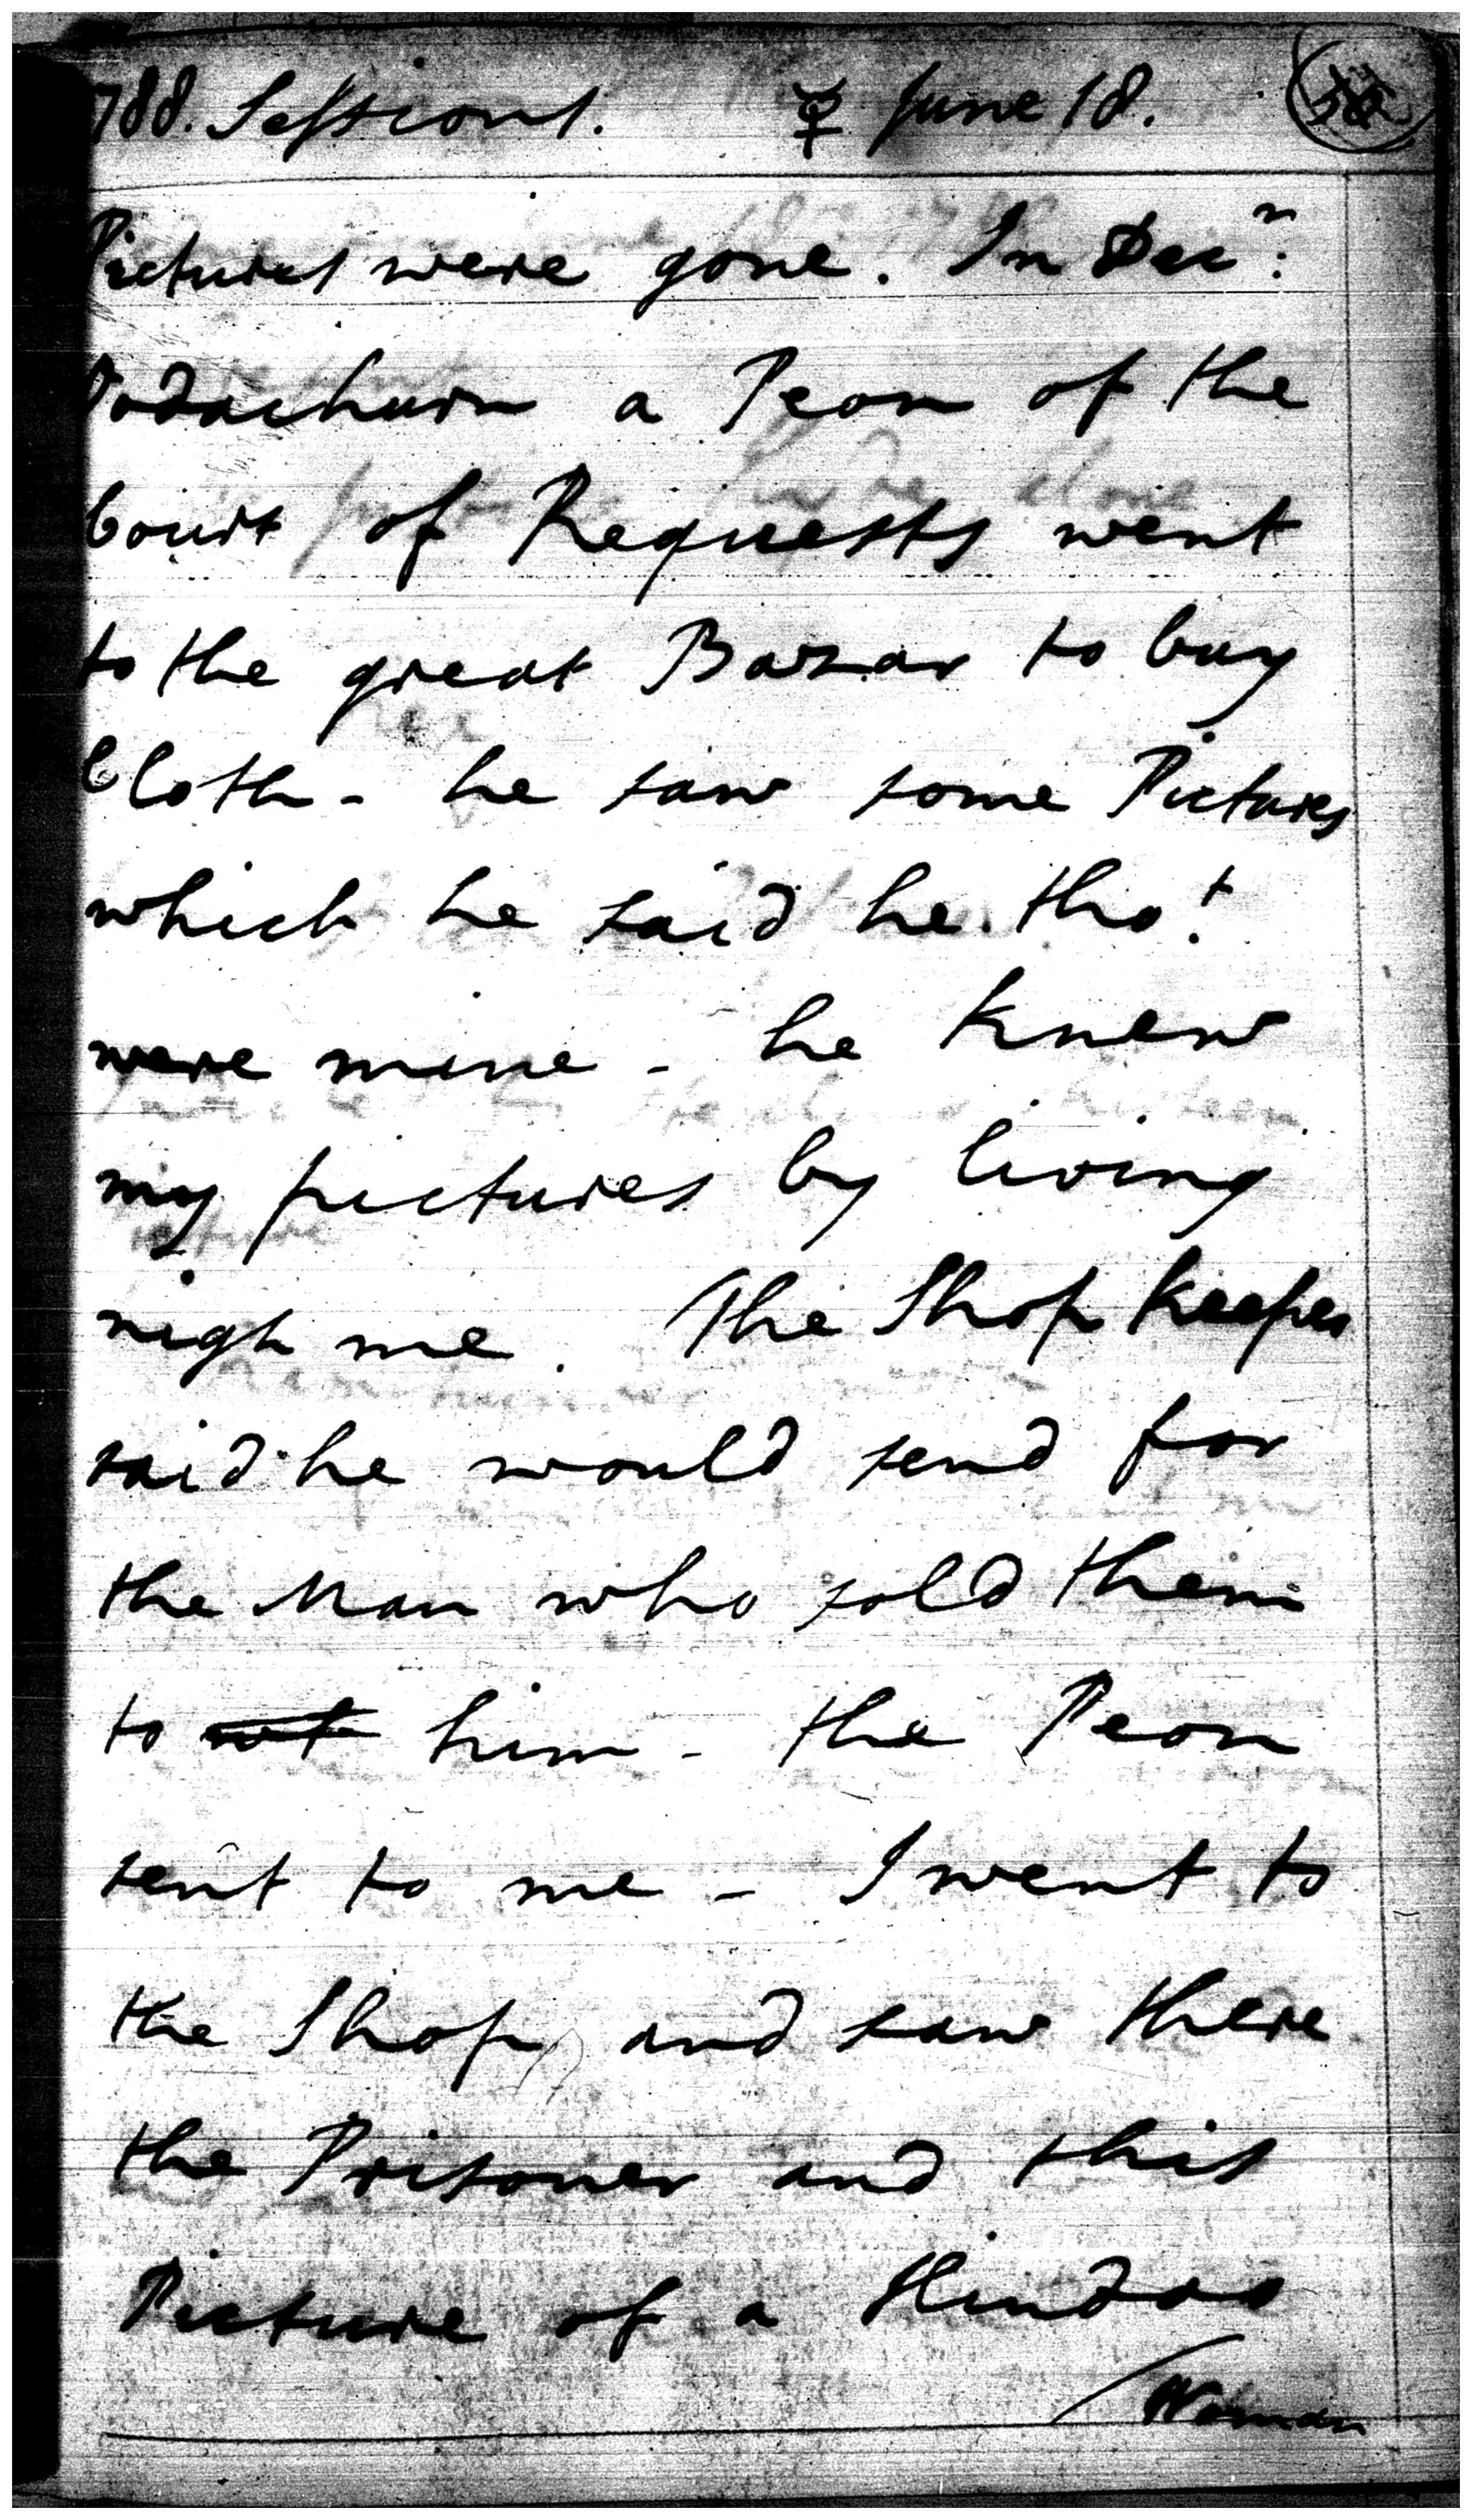 788. Sessions. ☿ June 18.
Pictures were gone. In Decr:
a Peon of the
Court of Requests went
to the great Bazar to buy
Cloth - he saw some Pictures
which he said he thot
were mine - he knew
my pictures by living
nigh me. The Shop keeper
said he would send for
the Man who sold them
to him - the Peon
sent to me - I went to
the Shop and saw there
the Prisoner and this
Picture of a Hindoo
Woman